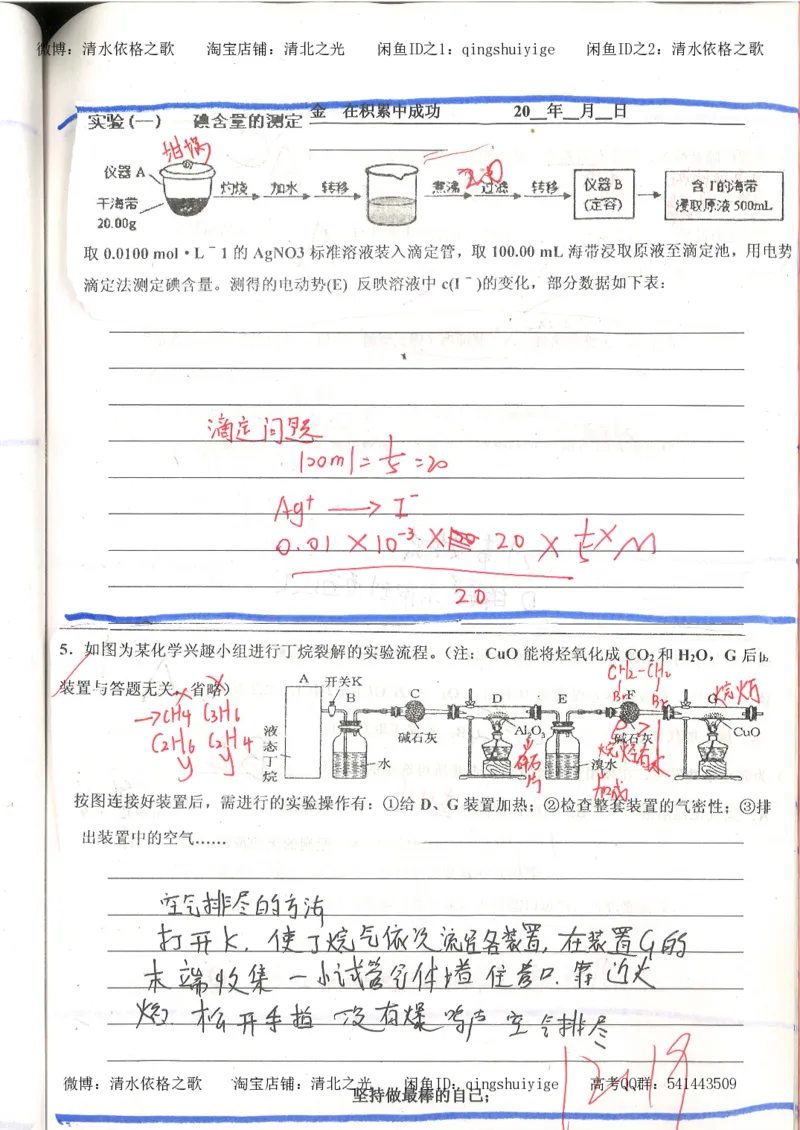 微博：清水依格之歌 淘宝店铺：清北之光 闲鱼ID之1：qingshuiyige 闲鱼ID之2：清水依格之歌
金 在积累中成功 20__年__月__日
实验(一) 碘含量的测定
坩埚
仪器 A
干海带
20.00g
灼烧 加水 转移 煮沸 过滤 转移
仪器 B
(定容)
含 I⁻的海带
浸取原液 500mL
取 0.0100 mol·L⁻1 的 AgNO3 标准溶液装入滴定管，取 100.00 mL 海带浸取原液至滴定池，用电势
滴定法测定碘含量。测得的电动势(E) 反映溶液中 c(I⁻)的变化，部分数据如下表：
滴定问题
100ml = 1/5 = 20
Ag⁺ → I⁻
0.01 × 10⁻³ × 20 × 1/5 × M
20
5．如图为某化学兴趣小组进行丁烷裂解的实验流程。（注：CuO 能将烃氧化成 CO₂ 和 H₂O，G 后面
装置与答题无关，省略）
x x
→CH4 C3H6
C2H6 C2H4
y y
A 开关K
B C D E F G
液态丁烷
水
碱石灰
Al₂O₃
碎石片
溴水
碱石灰
CuO
CH2-CH2
Br Br
烷烃
加成
按图连接好装置后，需进行的实验操作有：①给 D、G 装置加热；②检查整套装置的气密性；③排
出装置中的空气……
空气排尽的方法
打开K，使丁烷气依次流经各装置，在装置G的
末端收集一小试管气体堵住管口．靠近火
焰．松开手指 没有爆鸣声 空气排尽
12.19
微博：清水依格之歌 淘宝店铺：清北之光 闲鱼ID：qingshuiyige 高考QQ群：541443509
坚持做最棒的自己；